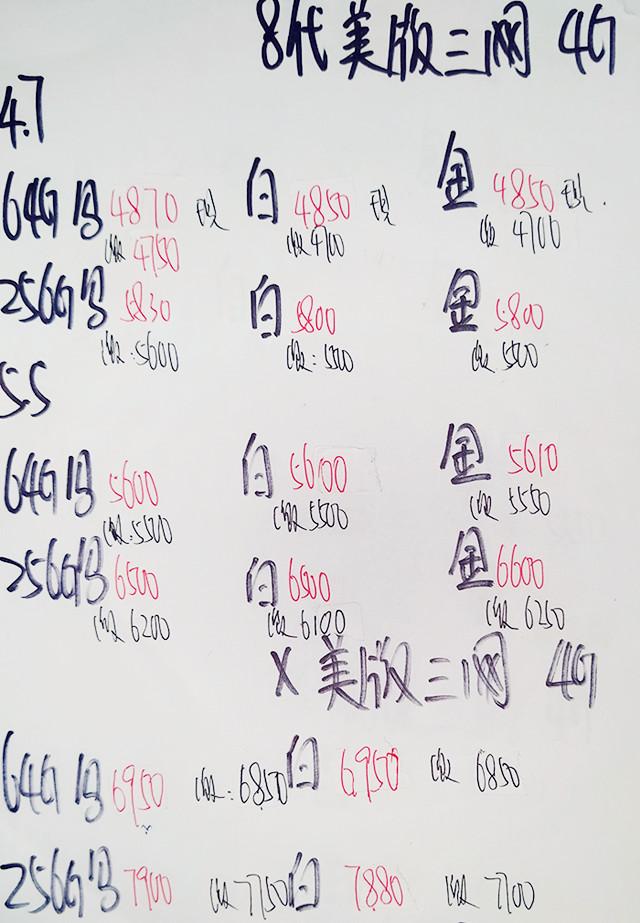 8代美版三网 4G
4.7
64G 黑 4870 现 白 4850 现 金 4850 现.
收 4750 收 4700 收 4700
256G 黑 5830 白 5800 金 5800
收:5600 收:5500 收 5500
5.5
64G 黑 5600 白 5600 金 5610
收:5500 收 5500 收 5550
256G 黑 6500 白 6500 金 6600
收 6200 收 6100 收 6250
X 美版三网 4G
64G 黑 6950 收:6850 白 6950 收 6850
256G 黑 7900 收 7750 白 7880 收 7700